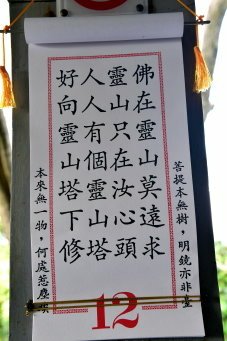 菩提本無樹，明鏡亦非臺
佛在靈山莫遠求
靈山只在汝心頭
人人有個靈山塔
好向靈山塔下修
本來無一物，何處惹塵埃
12